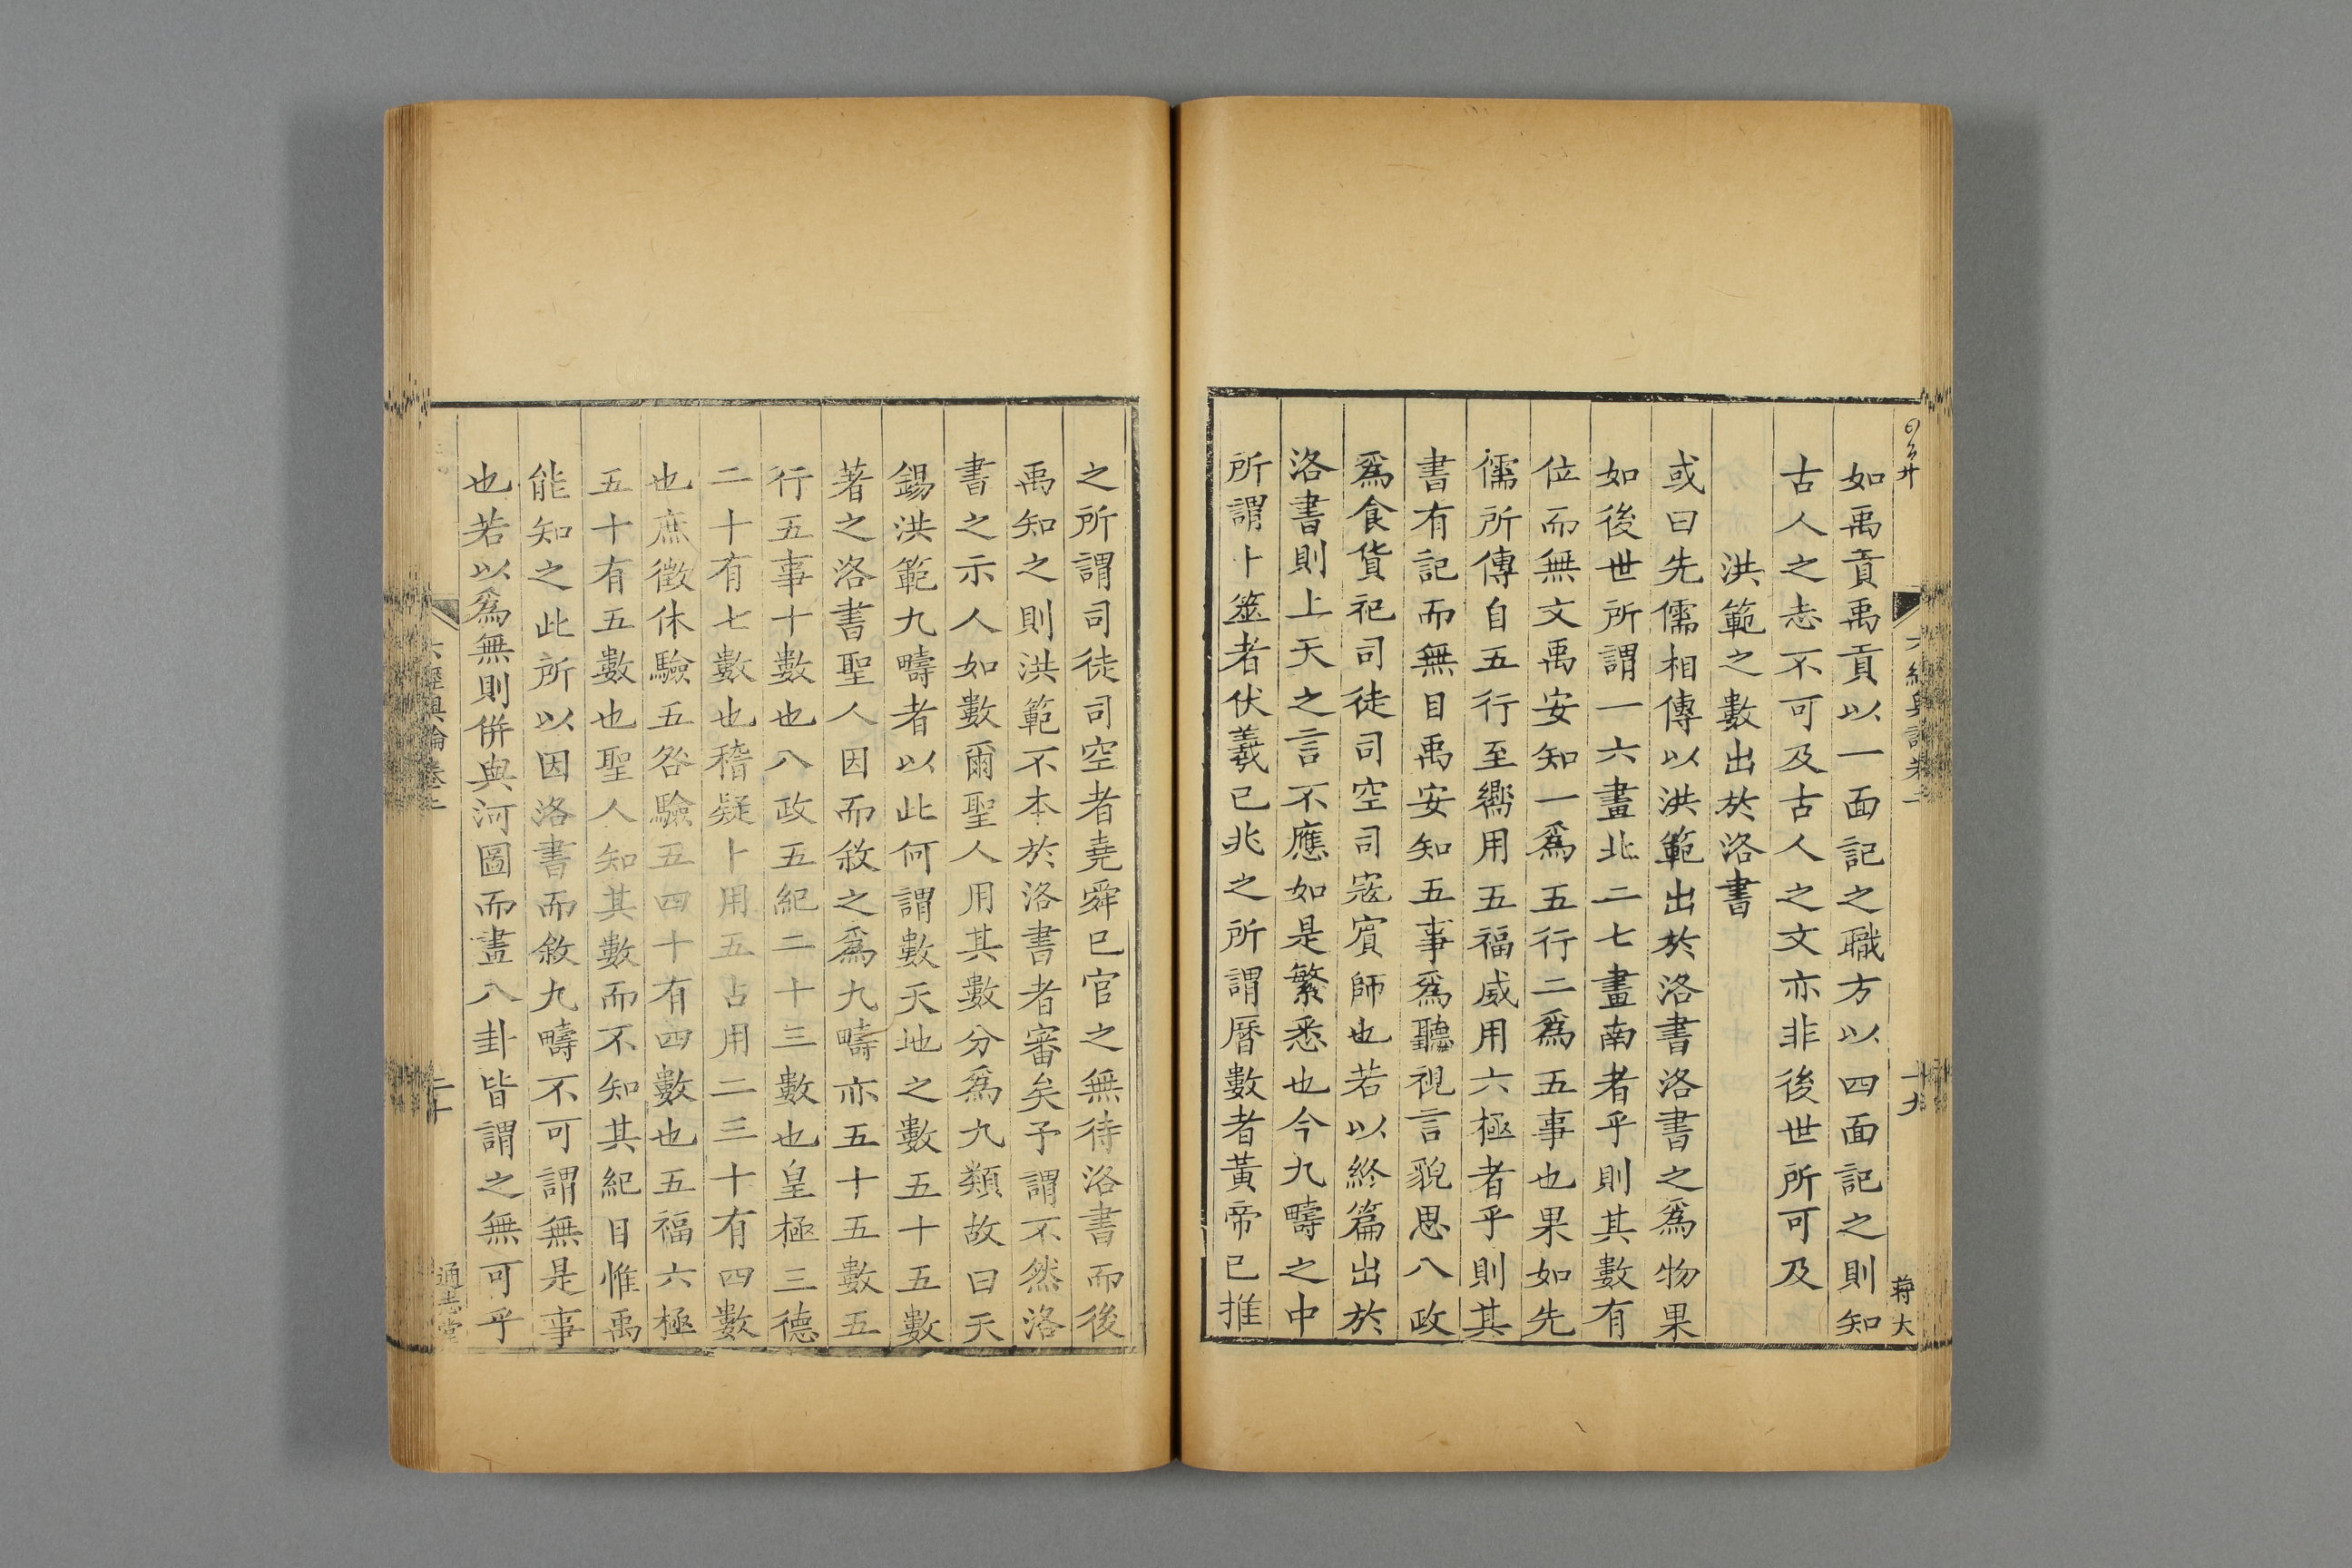 如禹貢禹貢以一面記之職方以四面記之則知
古人之志不可及古人之文亦非後世所可及
洪範之數出於洛書
或曰先儒相傳以洪範出於洛書洛書之爲物果
如後世所謂一六畫北二七畫南者乎則其數有
位而無文禹安知一爲五行二爲五事也果如先
儒所傳自五行至嚮用五福威用六極者乎則其
書有記而無目禹安知五事爲聽視言貌思八政
爲食貨祀司徒司空司寇賓師也若以終篇出於
洛書則上天之言不應如是繁悉也今九疇之中
所謂卜筮者伏羲已兆之所謂曆數者黃帝已推
之所謂司徒司空者堯舜已官之無待洛書而後
禹知之則洪範不本於洛書者審矣予謂不然洛
書之示人如數爾聖人用其數分爲九類故曰天
錫洪範九疇者以此何謂數天地之數五十五數
著之洛書聖人因而敘之爲九疇亦五十五數五
行五事十數也八政五紀二十三數也皇極三德
二十有七數也稽疑卜用五占用二三十有四數
也庶徵休驗五咎驗五四十有四數也五福六極
五十有五數也聖人知其數而不知其紀目惟禹
能知之此所以因洛書而敘九疇不可謂無是事
也若以爲無則併與河圖而畫八卦皆謂之無可乎
六經奧論卷二
十九
蔣大
六經奧論卷二
二十
通志堂